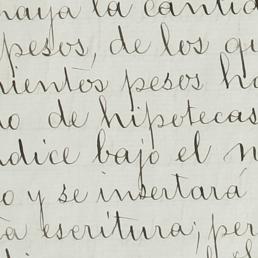 haya la cantid
pesos, de los qu
nientos pesos ha
o de hipotecas
ndice bajo el n
o y se insertará
ta escritura; per